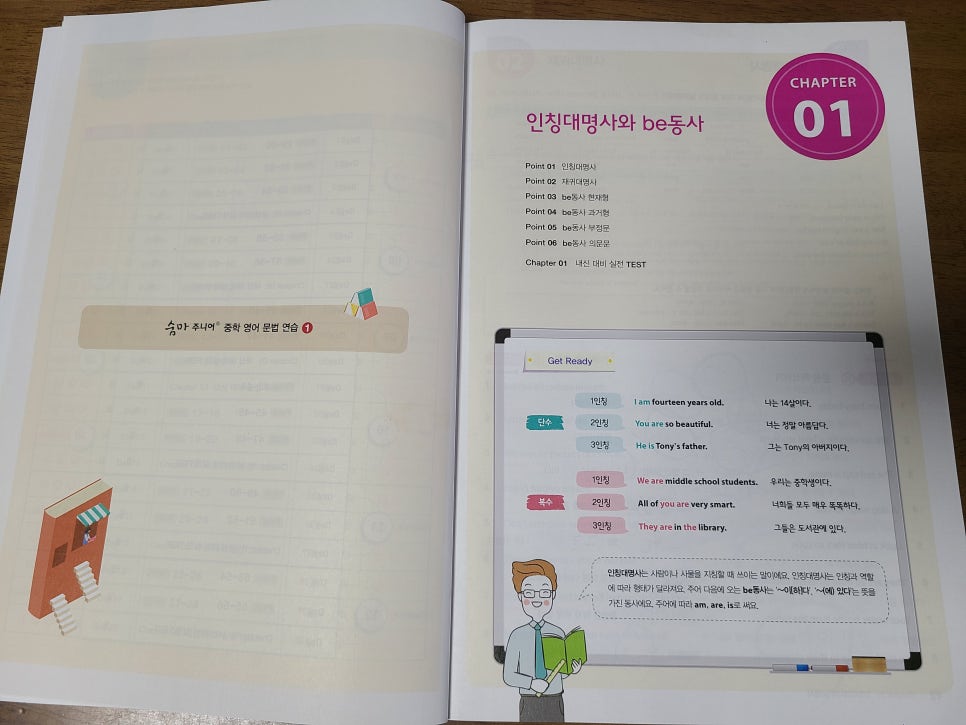 숨마 주니어® 중학 영어 문법 연습 1
CHAPTER
01
인칭대명사와 be동사
Point 01 인칭대명사
Point 02 재귀대명사
Point 03 be동사 현재형
Point 04 be동사 과거형
Point 05 be동사 부정문
Point 06 be동사 의문문
Chapter 01 내신 대비 실전 TEST
Get Ready
단수
1인칭 I am fourteen years old. 나는 14살이다.
2인칭 You are so beautiful. 너는 정말 아름답다.
3인칭 He is Tony's father. 그는 Tony의 아버지이다.
복수
1인칭 We are middle school students. 우리는 중학생이다.
2인칭 All of you are very smart. 너희들 모두 매우 똑똑하다.
3인칭 They are in the library. 그들은 도서관에 있다.
인칭대명사는 사람이나 사물을 지칭할 때 쓰이는 말이에요. 인칭대명사는 인칭과 역할
에 따라 형태가 달라져요. 주어 다음에 오는 be동사는 '~이[하]다', '~(에) 있다'는 뜻을
가진 동사예요. 주어에 따라 am, are, is로 써요.